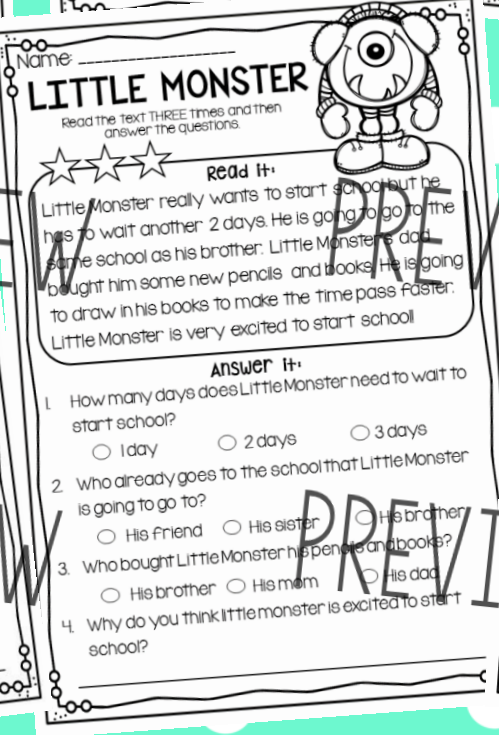 Name:
LITTLE MONSTER
Read the text THREE times and then
answer the questions.
Read it:
Little Monster really wants to start school but he
has to wait another 2 days. He is going to go to the
same school as his brother. Little Monster's dad
bought him some new pencils and books. He is going
to draw in his books to make the time pass faster.
Little Monster is very excited to start school!
Answer it:
1. How many days does Little Monster need to wait to
start school?
1 day 2 days 3 days
2. Who already goes to the school that Little Monster
is going to go to?
His friend His sister His brother
3. Who bought Little Monster his pencils and books?
His brother His mom His dad
4. Why do you think little monster is excited to start
school?
PREV
PREVI
W
W